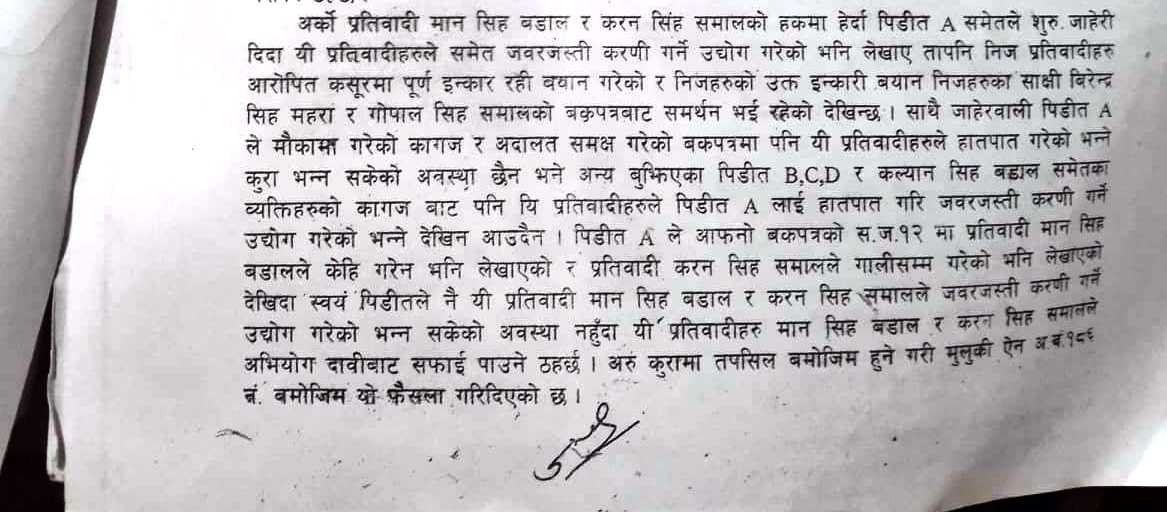 अर्को प्रतिवादी मान सिह बडाल र करन सिंह समालको हकमा हेर्दा पिडीत A समेतले शुरु जाहेरी
दिदा यी प्रतिवादीहरुले समेत जवरजस्ती करणी गर्ने उद्योग गरेको भनि लेखाए तापनि निज प्रतिवादीहरु
आरोपित कसूरमा पूर्ण इन्कार रही बयान गरेको र निजहरुको उक्त इन्कारी बयान निजहरुका साक्षी बिरेन्द्र
सिह महरा र गोपाल सिह समालको बकपत्रबाट समर्थन भई रहेको देखिन्छ । साथै जाहेरवाली पिडीत A
ले मौकामा गरेको कागज र अदालत समक्ष गरेको बकपत्रमा पनि यी प्रतिवादीहरुले हातपात गरेको भन्ने
कुरा भन्न सकेको अवस्था छैन भने अन्य बुझिएका पिडीत B,C,D र कल्यान सिह बडाल समेतका
व्यक्तिहरुको कागज बाट पनि यि प्रतिवादीहरुले पिडीत A लाई हातपात गरि जवरजस्ती करणी गर्ने
उद्योग गरेको भन्ने देखिन आउदैन । पिडीत A ले आफनो बकपत्रको स.ज.१२ मा प्रतिवादी मान सिह
बडालले केहि गरेन भनि लेखाएको र प्रतिवादी करन सिह समालले गालीसम्म गरेको भनि लेखाएको
देखिदा स्वयं पिडीतले नै यी प्रतिवादी मान सिह बडाल र करन सिह समालले जवरजस्ती करणी गर्ने
उद्योग गरेको भन्न सकेको अवस्था नहुँदा यी प्रतिवादीहरु मान सिह बडाल र करन सिह समालले
अभियोग दावीबाट सफाई पाउने ठहर्छ । अरु कुरामा तपसिल बमोजिम हुने गरी मुलुकी ऐन अ.बं.१८६
नं. बमोजिम यो फैसला गरिदिएको छ ।